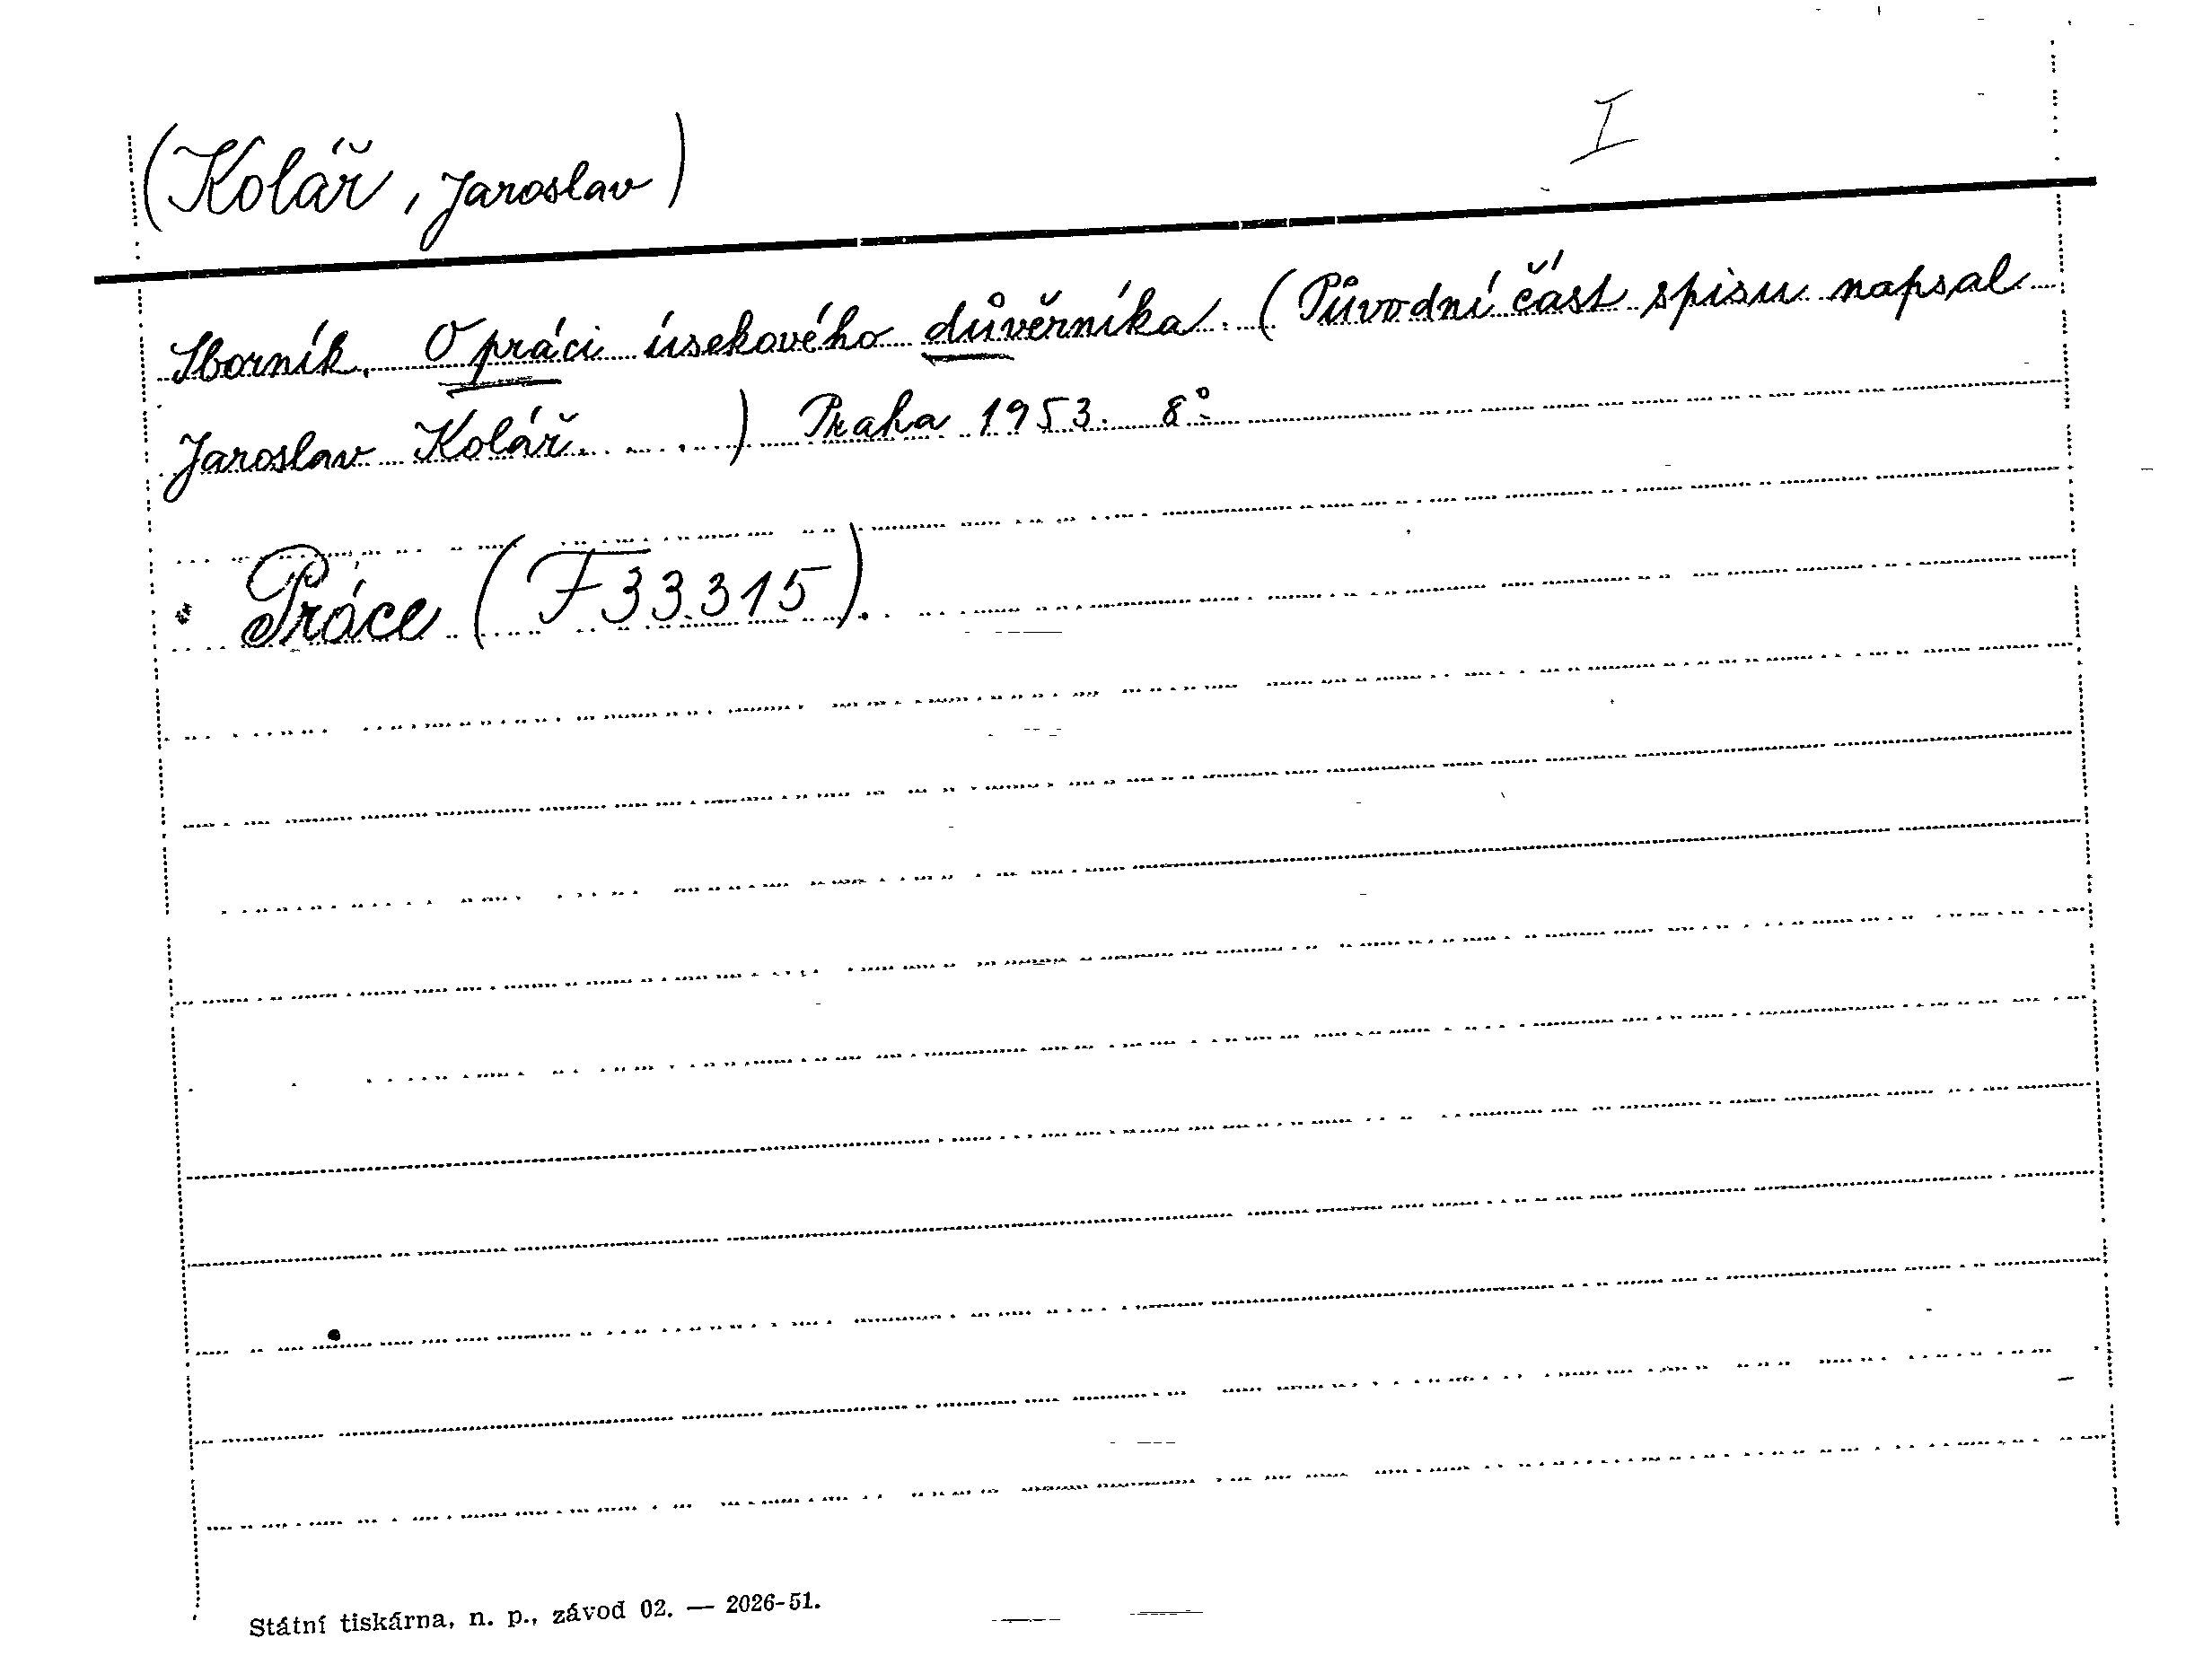 (Kolář, Jaroslav) I
Sborník. O práci úsekového důvěrníka. (Původní část spisu napsal
Jaroslav Kolář. . . . .) Praha 1953. 8°
Práce (F 33.315).
Státní tiskárna, n. p., závod 02. — 2026-51.